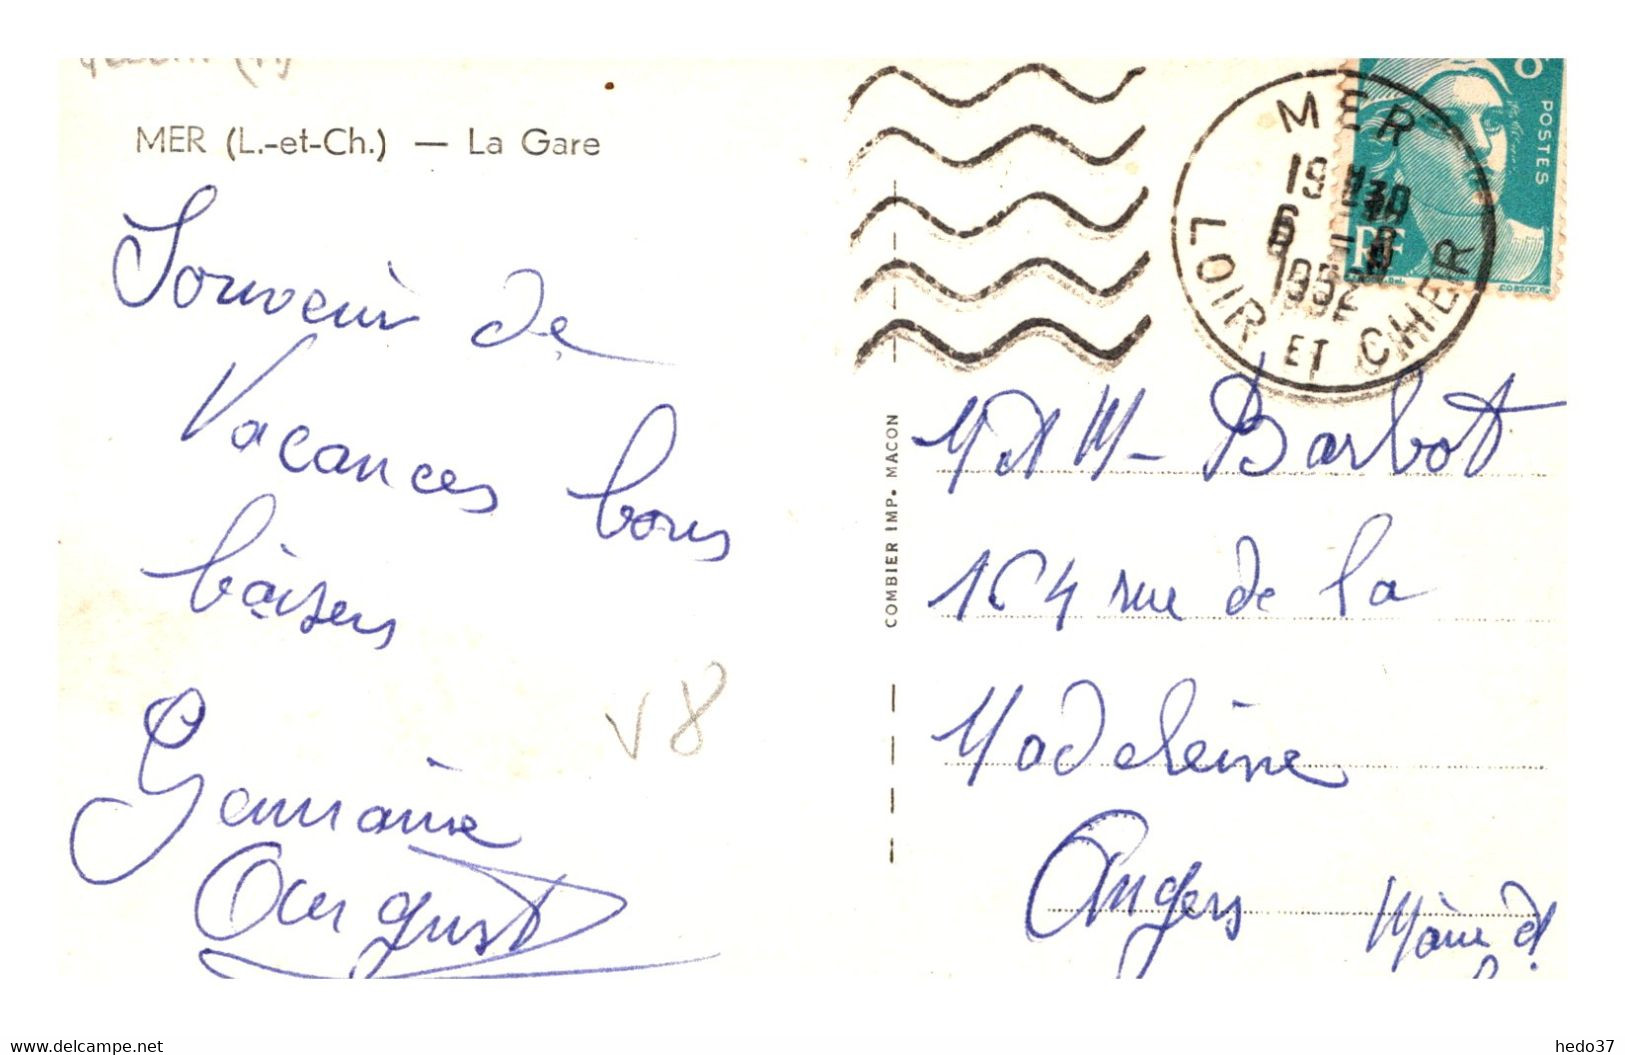 MER (L.-et-Ch.) — La Gare
Souvenir de
Vacances bons
baisers
Germaine
August
V8
COMBIER IMP. MACON
MER
19 30
6 - 8
1952
LOIR ET CHER
POSTES
RF
M et M - Barbot
164 rue de la
Madeleine
Angers
Maine et
www.delcampe.net
hedo37